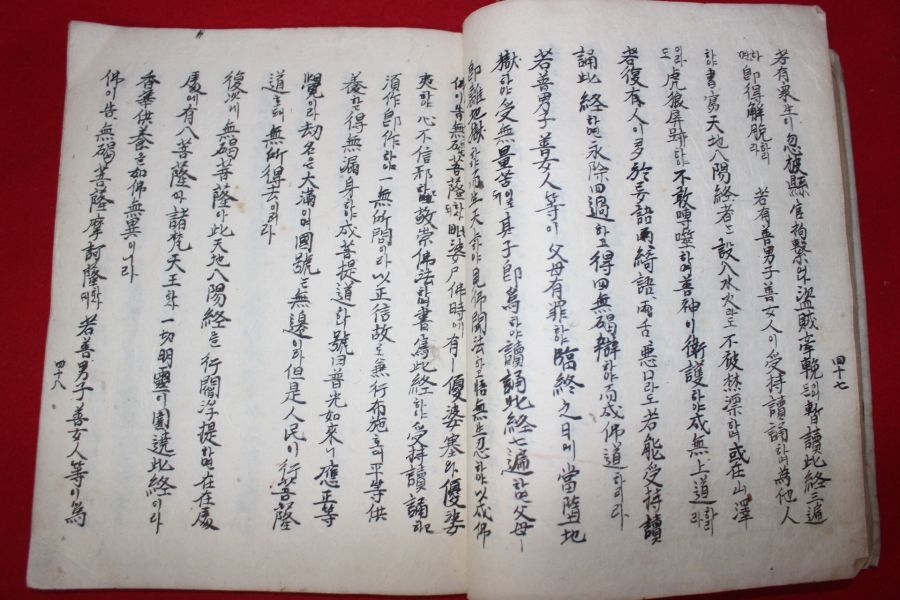 四十七
若有衆生이 忽被縣官拘繫와 盜賊牽輓 暫讀此経三遍
하면 即得解脫하리라 若有善男子善女人이 受持讀誦하며 為他人
하야 書寫天地八陽経者는 設入水火라도 不被焚漂하며 或在山澤
이라도 虎狼屏跡하야 不敢噬하며 善神이 衛護하야 成無上道하리라
若復有人이 多於妄語와 綺語와 兩舌惡口라도 若能受持讀
誦此経하면 永除四過하고 得四無碍辯하야 而成佛道하리라
若善男子善女人等이 父母有罪하야 臨終之日에 當墮地
獄하야 受無量苦되 其子即為하야 讀誦此経七遍하면 父母
即離地獄하야 而生天上하야 見佛聞法하고 悟無生忍하야 以成佛
佛이 告無碍菩薩하되 毗婆尸佛時에 有優婆塞와 優婆
夷하야 心不信邪하고 敬崇佛法하며 書寫此経하야 受持讀誦하되
須作即作하야 一無所問이라 以正信故로 兼行布施하되 平等供
養하고 得無漏身하야 成菩提道하니 號曰普光如來니 應正等
覺이라 劫名은 大滿이며 國號는 無邊이라 但是人民이 行菩薩
道호되 無所得法이라
復次에 無碍菩薩아 此天地八陽経을 行閻浮提하면 在在處
處에 有八菩薩과 諸梵天王과 一切明靈이 圍遶此経이라
香華供養을 如佛無異이니라
佛이 告無碍菩薩摩訶薩하되 若善男子善女人等이 為
四十八